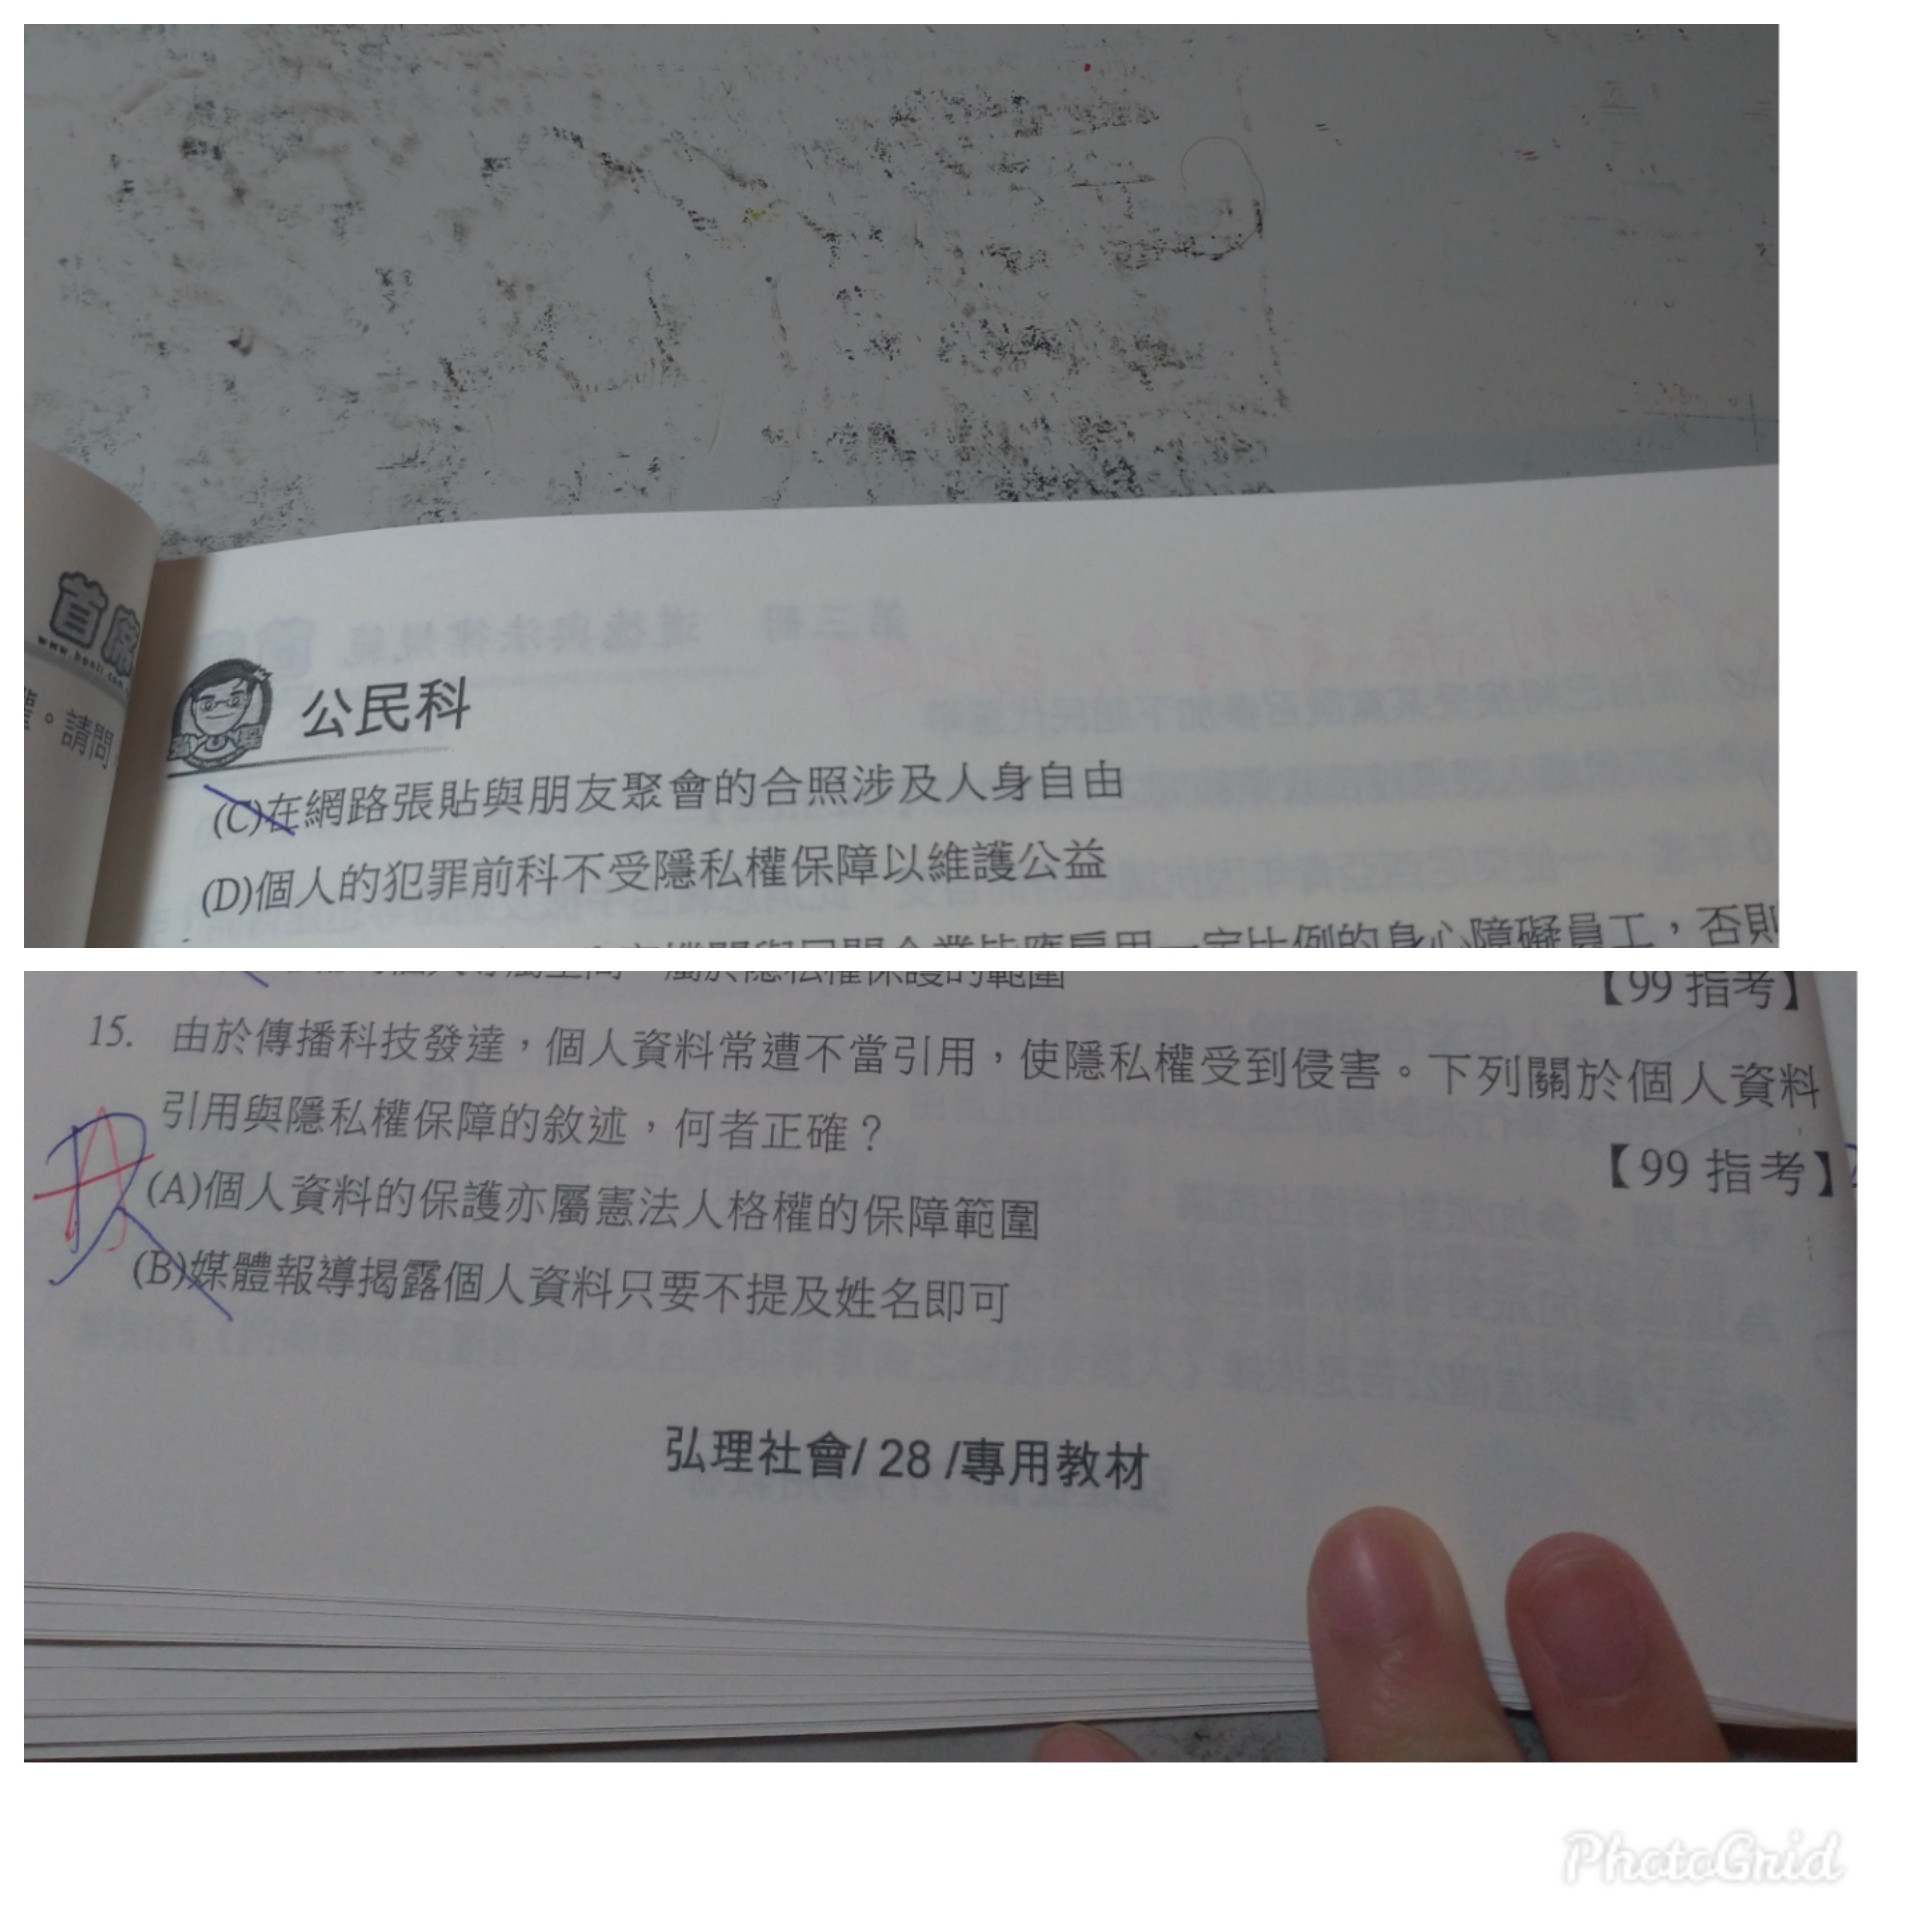 首席
www.honli.com
。請問
公民科
(C)在網路張貼與朋友聚會的合照涉及人身自由
(D)個人的犯罪前科不受隱私權保障以維護公益
機關與民間企業皆應雇用一定比例的身心障礙員工，否則
屬於隱私權保護的範圍
【99 指考】
15. 由於傳播科技發達，個人資料常遭不當引用，使隱私權受到侵害。下列關於個人資料
引用與隱私權保障的敘述，何者正確？
【99 指考】
(A)個人資料的保護亦屬憲法人格權的保障範圍
(B)媒體報導揭露個人資料只要不提及姓名即可
弘理社會/ 28 /專用教材
PhotoGrid